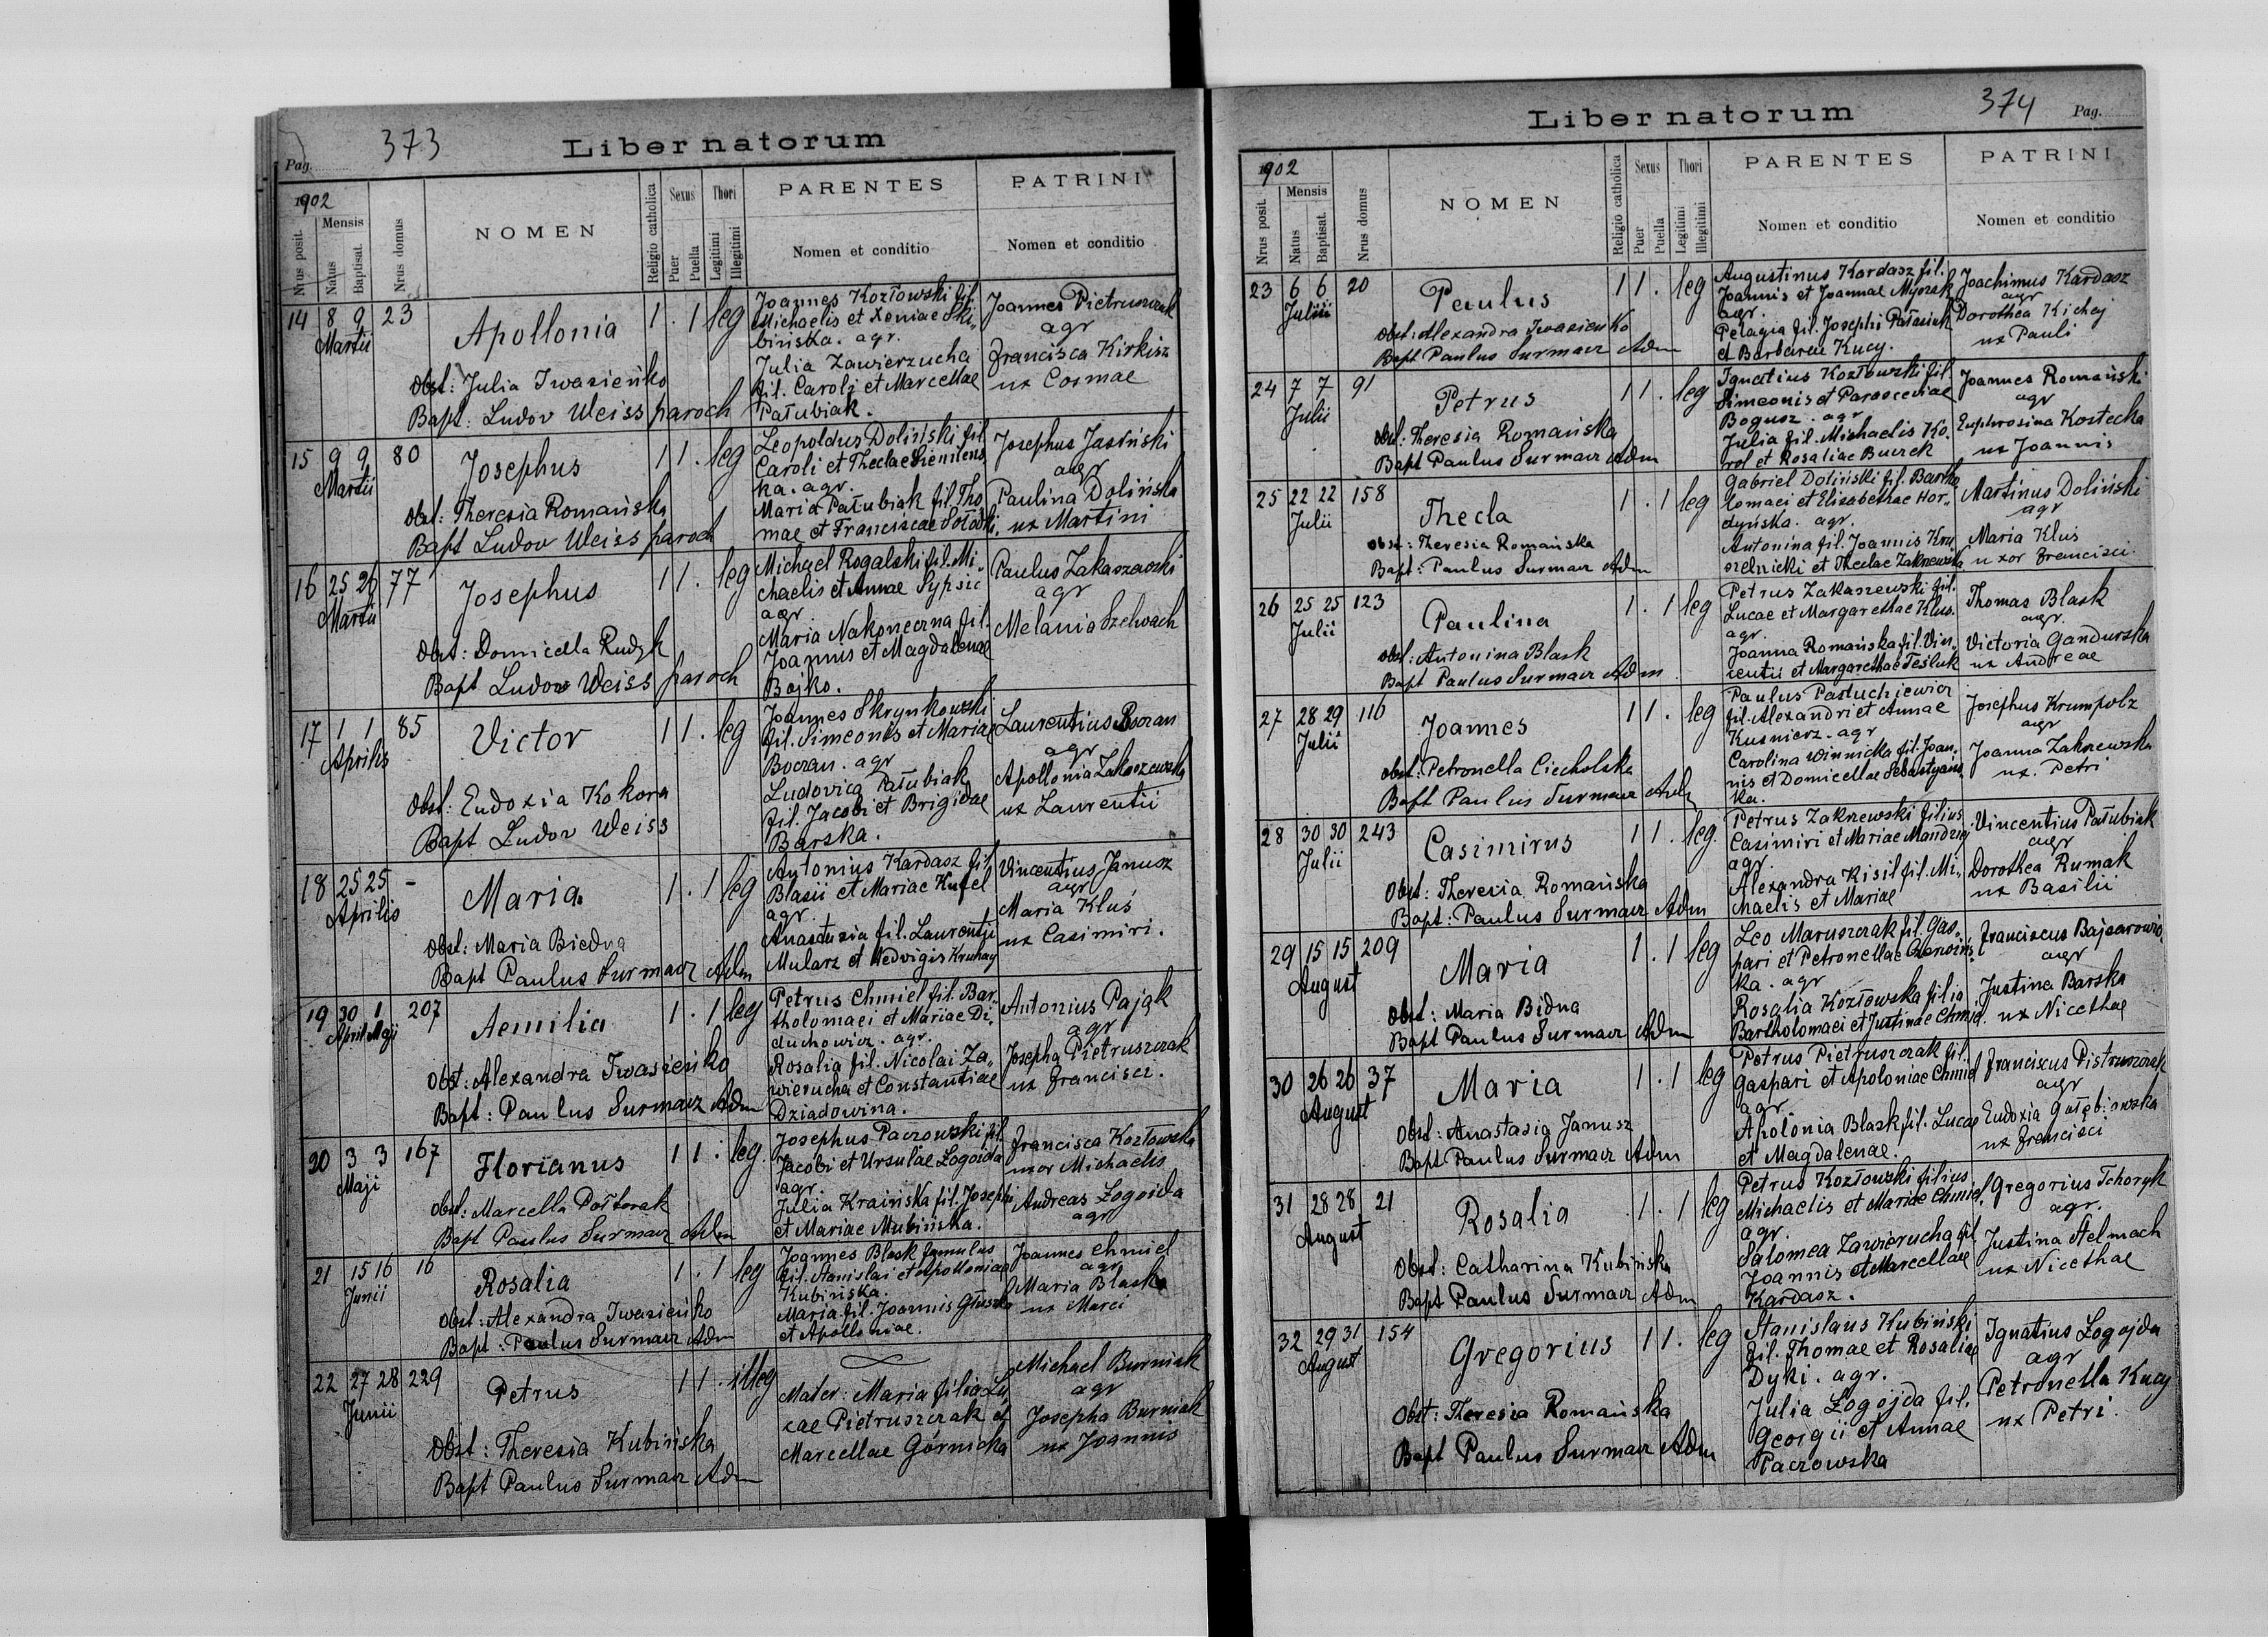 373
Liber natorum
Pag.
1902
Nrus posit.
Mensis
Natus
Baptisat.
Nrus domus
NOMEN
Religio catholica
Sexus
Puer
Puella
Thori
Legitimi
Illegitimi
PARENTES
Nomen et conditio
PATRINI
Nomen et conditio
14 8 9 23
Martii
Apollonia
1 . 1 leg
Obst: Julia Iwasieńko
Bapt: Ludov Weiss paroch
Joannes Kozłowski fil.
Michaelis et Xeniae Ski-
bińska. agr.
Julia Zawierzucha
fil. Caroli et Marcellae
Pałubiak.
Joannes Pietruszczak
agr
Francisca Kirkisz
ux Cosmae
15 9 9 80
Martii
Josephus
1 1 . leg
Obst: Theresia Romańska
Bapt Ludov Weiss paroch
Leopoldus Doliński fil
Caroli et Theclae Siemiens
ka. agr.
Maria Pałubiak fil. Tho
mae et Franciscae Sołodki.
Josephus Jasiński
agr
Paulina Dolińska
ux Martini
16 25 26 77
Martii
Josephus
1 1 . leg
Obst: Domicella Rudyk
Bapt Ludov Weiss paroch
Michael Rogalski fil. Mi-
chaelis et Annae Sypsic
agr
Maria Nakoneczna fil.
Joannis et Magdalenae
Bojko.
Paulus Zakaszewski
agr
Melania Szelwach
17 1 1 85
Aprilis
Victor
1 1 . leg
Obst: Eudoxia Kokora
Bapt Ludov Weiss
Joannes Skrynkowski
fil. Simeonis et Mariae
Boczan. agr
Ludovica Pałubiak
fil. Jacobi et Brigidae
Barska.
Laurentius Boczan
agr
Apollonia Zakaszewska
ux Laurentii
18 25 25 -
Aprilis
Maria
1 . 1 leg
Obst: Maria Biedna
Bapt Paulus Surmacz Adm
Antonius Kardasz fil
Blasii et Mariae Kufel
agr.
Anastazia fil. Laurentii
Mularz et Hedvigis Kruhay
Vincentius Janusz
agr
Maria Kluś
ux Casimiri.
19 30 1 207
April Maji
Aemilia
1 . 1 leg
Obst: Alexandra Iwasieńko
Bapt: Paulus Surmacz Adm
Petrus Chmiel fil. Bar-
tholomaei et Mariae Di-
duchowicz. agr.
Rosalia fil. Nicolai Za-
wierucha et Constantiae
Dziadowina.
Antonius Pająk
agr
Josepha Pietruszczak
ux Francisci.
20 3 3 167
Maji
Florianus
1 1 . leg.
Obst: Marcella Połtorak
Bapt Paulus Surmacz Adm
Josephus Paczowski fil.
Jacobi et Ursulae Łogojda
agr.
Julia Kraińska fil. Josephi
et Mariae Mubińska.
Francisca Kozłowska
uxor Michaelis
Andreas Łogojda
agr
21 15 16 16
Junii
Rosalia
1 . 1 leg
Obst: Alexandra Iwasieńko
Bapt: Paulus Surmacz Adm
Joannes Blask famulus
fil. Stanislai et Apolloniae
Kubińska.
Maria fil. Joannis Głuszko
et Apolloniae.
Joannes Chmiel
agr
Maria Blaska
ux Marci
22 27 28 229
Junii
Petrus
1 1 . illeg
Obst: Theresia Kubińska
Bapt Paulus Surmacz Adm
Mater: Maria filia Lu
cae Pietruszczak et
Marcellae Górnicka
Michael Burniak
agr
Josepha Burniak
ux Joannis
Liber natorum
374
Pag.
1902
Nrus posit.
Mensis
Natus
Baptisat.
Nrus domus
NOMEN
Religio catholica
Sexus
Puer
Puella
Thori
Legitimi
Illegitimi
PARENTES
Nomen et conditio
PATRINI
Nomen et conditio
23 6 6 20
Julii
Paulus
1 1 . leg
Obst: Alexandra Iwasienko
Bapt Paulus Surmacz Adm
Augustinus Kardasz fil.
Joannis et Joannae Myorsk
agr.
Pelagia fil. Josephi Pałasiuk
et Barbarae Kucy.
Joachimus Kardasz
agr
Dorothea Kichej
ux Pauli
24 7 7 91
Julii
Petrus
1 1 . leg
Obst: Theresia Romańska
Bapt Paulus Surmacz Adm
Ignatius Kozłowski fil.
Simeonis et Parasceviae
Bogusz. agr
Julia fil. Michaelis Ko-
rol et Rosaliae Buczek
Joannes Romański
agr
Euphrosina Kostecka
ux Joannis
25 22 22 158
Julii
Thecla
1 . 1 leg
Obst: Theresia Romańska
Bapt: Paulus Surmacz Adm
Gabriel Doliński fil. Bartho
lomaei et Elisabethae Hor-
dyńska. agr.
Antonina fil. Joannis Kru
szelnicki et Theclae Zakrzewska
Martinus Doliński
agr
Maria Klus
uxor Francisci.
26 25 25 123
Julii
Paulina
1 . 1 leg
Obst: Antonina Blask
Bapt Paulus Surmacz Adm
Petrus Zakaszewski fil.
Lucae et Margarethae Klus.
agr.
Joanna Romańska fil. Vin-
centii et Margarethae Tesluk
Thomas Blask
agr.
Victoria Gandurska
ux Andreae
27 28 29 116
Julii
Joannes
1 1 . leg
Obst: Petronella Ciecholska
Bapt Paulus Surmacz Adm
Paulus Pastuchiewicz
fil. Alexandri et Annae
Kusnierz. agr
Carolina Winnicka fil. Joan-
nis et Domicellae Sebastyańs
ka.
Josephus Krumpolz
agr
Joanna Zakrzewska
ux. Petri
28 30 30 243
Julii
Casimirus
1 1 . leg.
Obst: Theresia Romańska
Bapt: Paulus Surmacz Adm
Petrus Zakrzewski filius
Casimiri et Mariae Mandziy
agr.
Alexandra Kisil fil. Mi-
chaelis et Mariae
Vincentius Pałubiak
agr
Dorothea Rumak
ux Basilii
29 15 15 209
August
Maria
1 . 1 leg
Obst: Maria Bidna
Bapt Paulus Surmacz Adm
Leo Maruszczak fil. Gas-
pari et Petronellae
ka. agr
Rosalia Kozłowska filia
Bartholomaei et Justinae Chmiel.
Franciscus Bajsarowicz
agr
Justina Barska
ux Nicethae
30 26 26 37
August
Maria
1 . 1 leg
Obst: Anastasia Janusz
Bapt Paulus Surmacz Adm
Petrus Pietruszczak fil.
Gaspari et Apoloniae Chmiel
agr.
Apolonia Blask fil. Lucae
et Magdalenae.
Franciscus Pietruszczak
agr
Eudoxia Gołębiowska
ux Francisci
31 28 28 21
August
Rosalia
. 1 . 1 leg
Obst: Catharina Kubińska
Bapt Paulus Surmacz Adm
Petrus Kozłowski filius
Michaelis et Mariae Chmiel.
agr.
Salomea Zawierucha fil
Joannis et Marcellae
Kardasz.
Gregorius Tchoryk
agr.
Justina Stelmach
ux Nicethae
32 29 31 154
August
Gregorius
1 1 . leg
Obst: Theresia Romańska
Bapt Paulus Surmacz Adm
Stanislaus Kubiński
fil. Thomae et Rosaliae
Dyki. agr.
Julia Łogojda fil.
Georgii et Annae
Paczowska
Ignatius Łogojda
agr
Petronella Kucy
ux Petri.